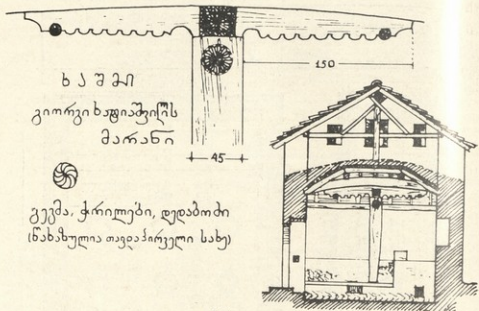 150
ხაშმი
გიორგი ხაფიაშვილის
მარანი
45
გეგმა, ჭრილები, დედაბოძი
(წახაზულია თავდაპირველი სახე)